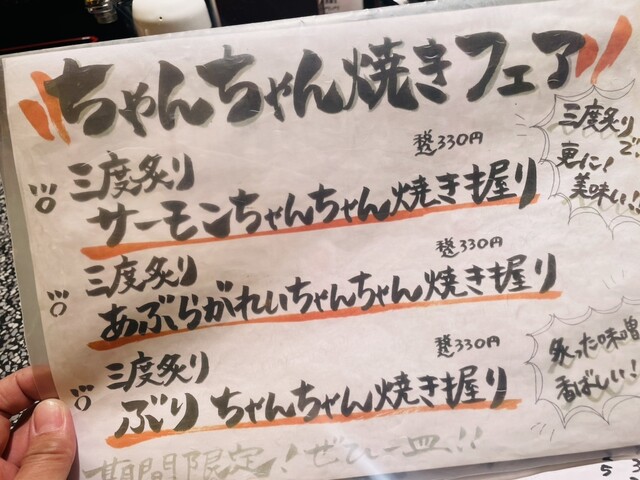 ちゃんちゃん焼きフェア
三度炙り
税込330円
サーモンちゃんちゃん焼き握り
三度炙りで、
更に！
美味い!!
三度炙り
税込330円
あぶらがれいちゃんちゃん焼き握り
三度炙り
税込330円
ぶりちゃんちゃん焼き握り
炙った味噌
香ばしい！
期間限定！ぜひ一皿!!